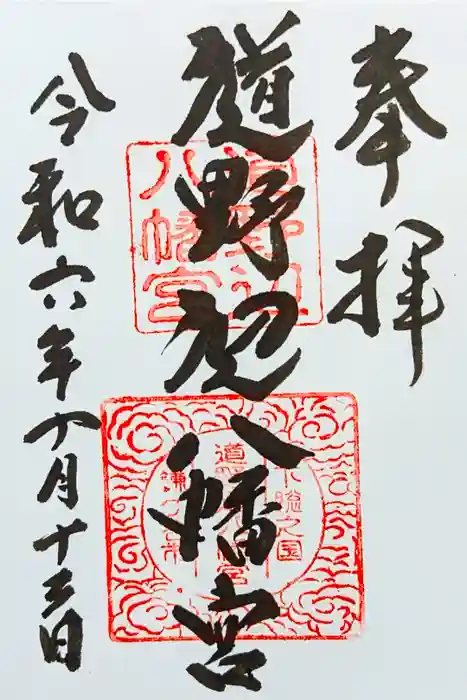 奉拝
道野辺八幡宮
令和六年十月十三日
道野辺
八幡宮
下総之国
道野辺八幡宮